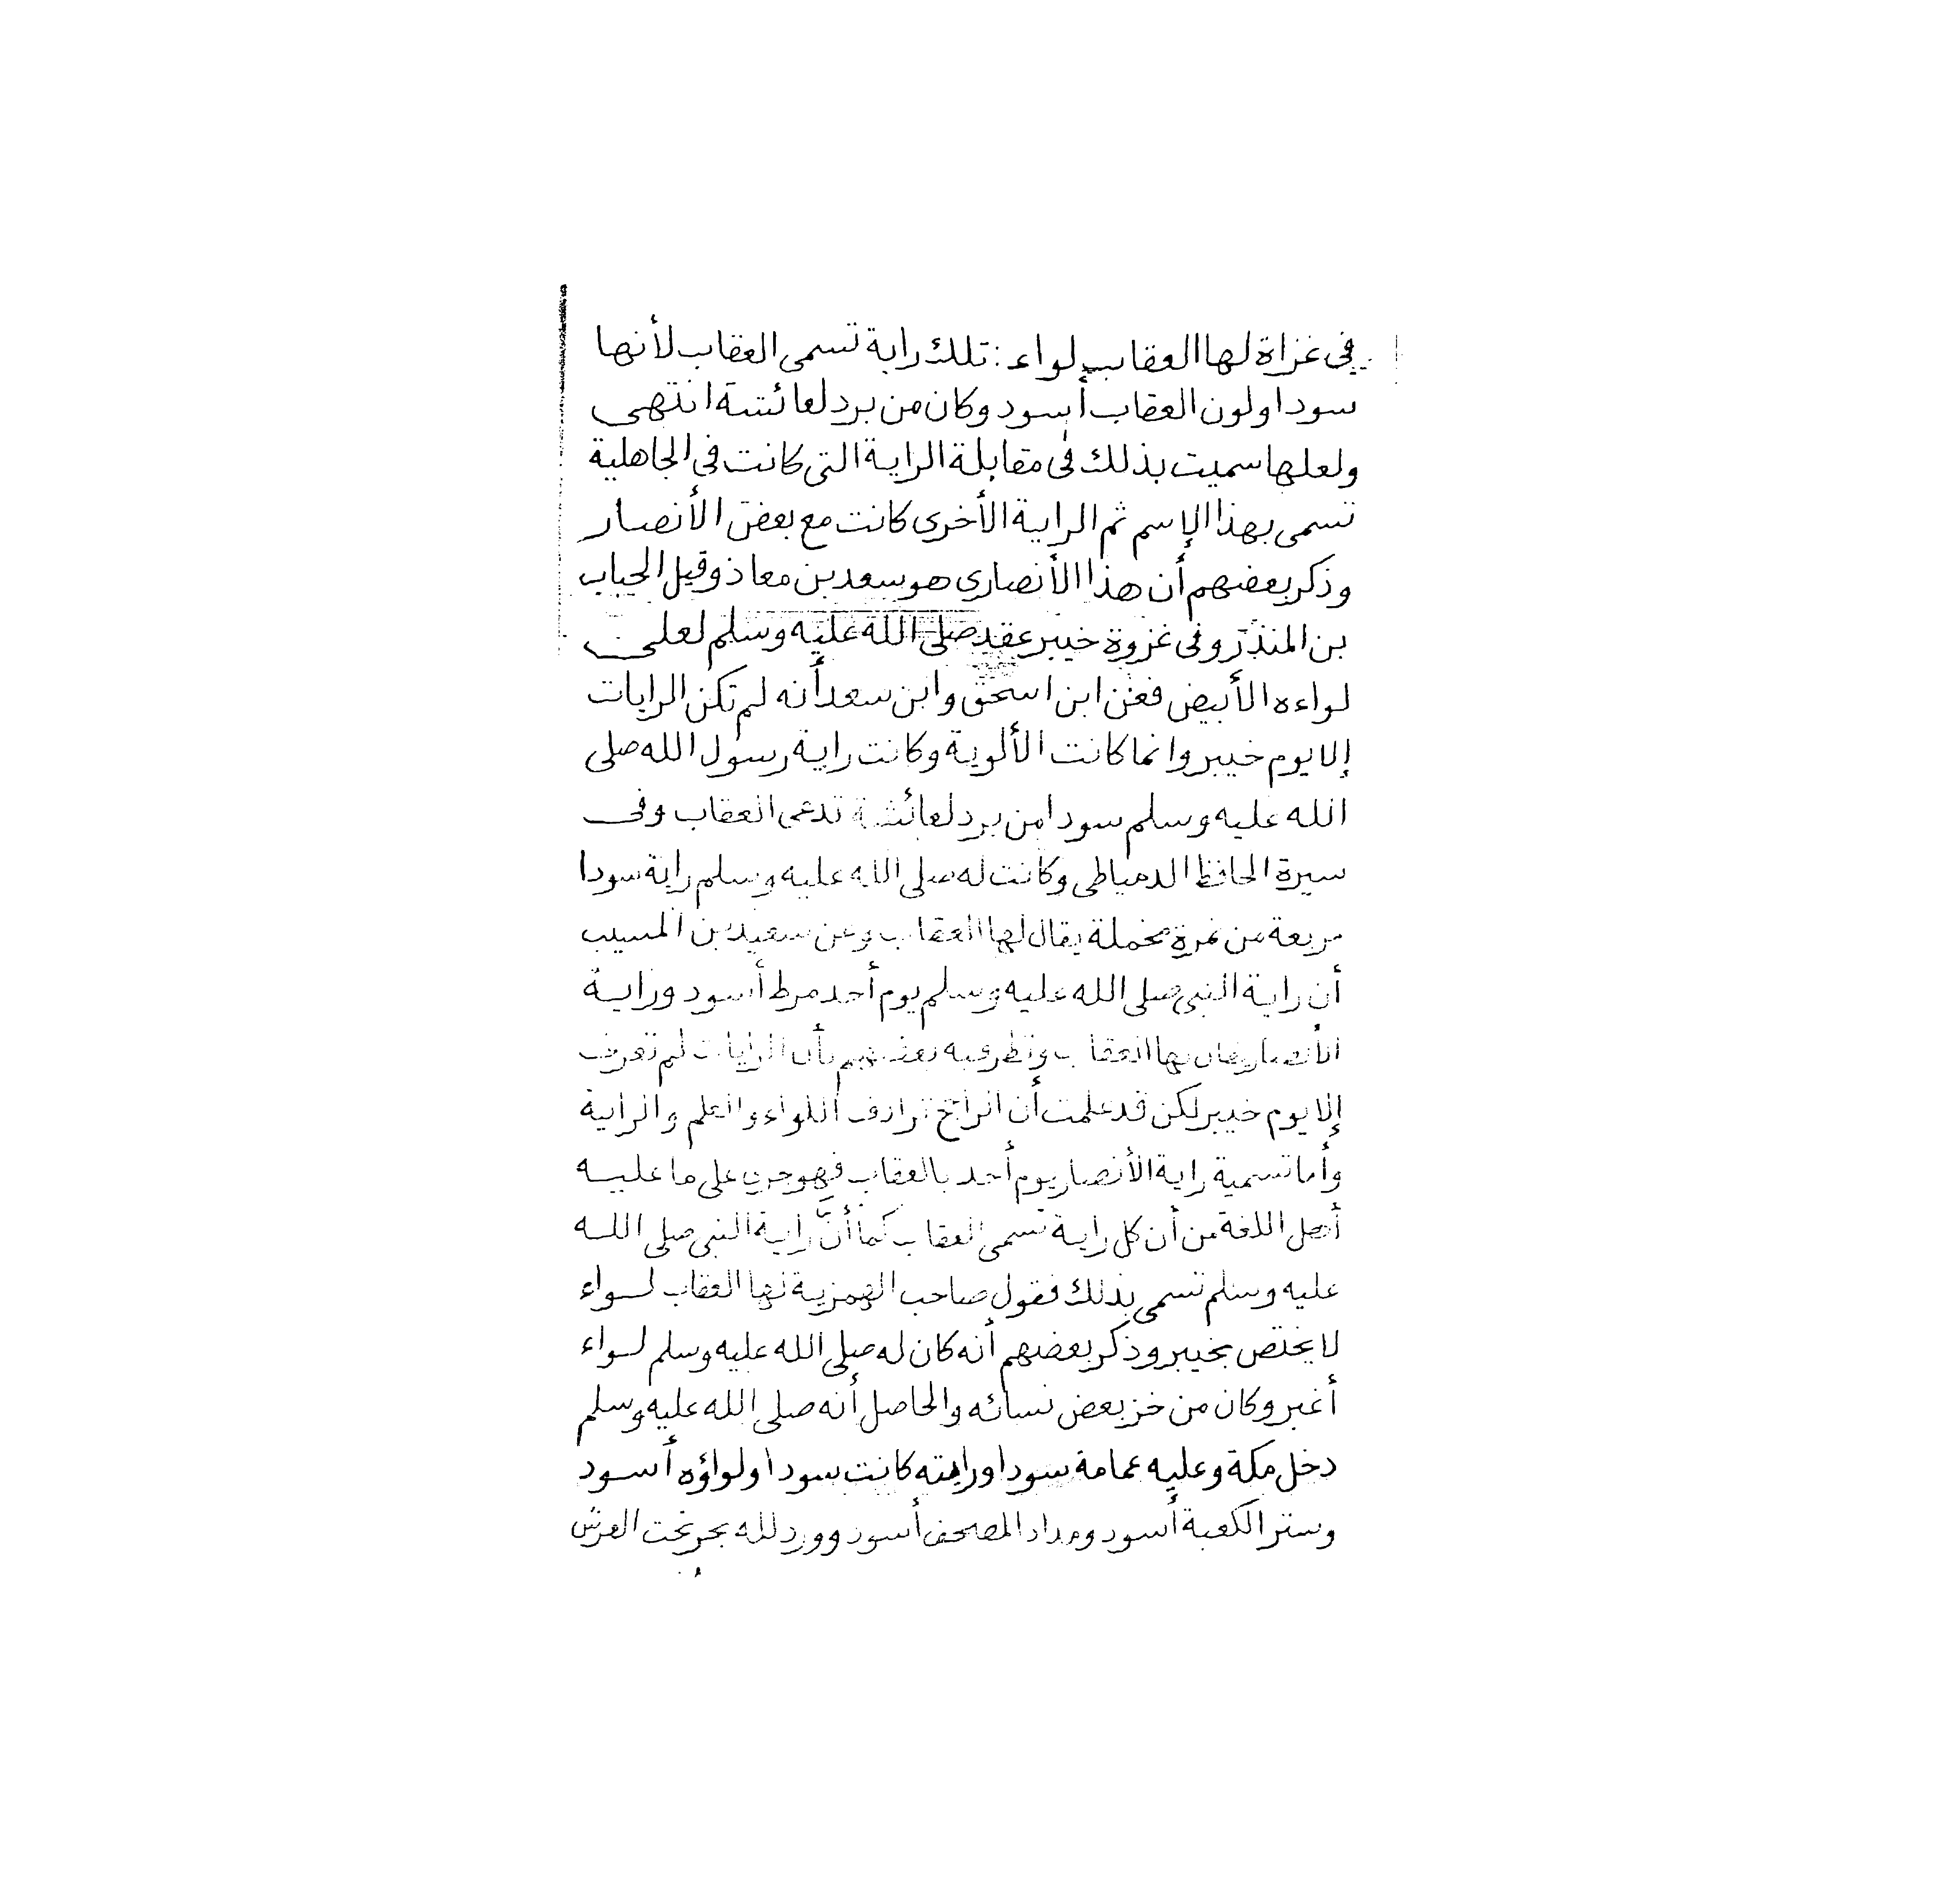 في غزاة لها العقاب لواء : تلك راية تسمى العقاب لأنها
سودا ولون العقاب أسود وكان من برد لعائشة انتهى
ولعلها سميت بذلك فى مقابلة الراية التى كانت فى الجاهلية
تسمى بهذا الإسم ثم الراية الأخرى كانت مع بعض الأنصار
وذكر بعضهم أن هذا الأنصارى هو سعد بن معاذ وقيل الحباب
بن المنذر وفى غزوة خيبر عقد صلى الله عليه وسلم لعلى
لواءه الأبيض فعن ابن اسحق وابن سعد أنه لم تكن الرايات
إلا يوم خيبر وانما كانت الألوية وكانت راية رسول الله صلى
الله عليه وسلم سودا من برد لعائشة تدعى العقاب وفى
سيرة الحافظ الدمياطى وكانت له صلى الله عليه وسلم راية سودا
مربعة من نمرة مخملة يقال لها العقاب وعن سعيد بن المسيب
أن راية النبى صلى الله عليه وسلم يوم أحد مرط أسود وراية
الأنصار يقال لها العقاب ونظر فيه بعضهم بأن الرايات لم تعرف
إلا يوم خيبر لكن قد علمت أن الراجح ترادف اللواء والعلم والراية
وأما تسمية راية الأنصار يوم أحد بالعقاب فهو جرى على ما عليه
أهل اللغة من أن كل راية تسمى العقاب كما أنَّ راية النبى صلى الله
عليه وسلم تسمى بذلك فقول صاحب الهمزية لها العقاب لواء
لا يختص بخيبر وذكر بعضهم أنه كان له صلى الله عليه وسلم لواء
أغبر وكان من خز بعض نسائه والحاصل أنه صلى الله عليه وسلم
دخل مكة وعليه عمامة سودا ورايته كانت سودا ولواؤه أسود
وستر الكعبة أسود ومداد المصحف أسود وورد لله بحر تحت العرش